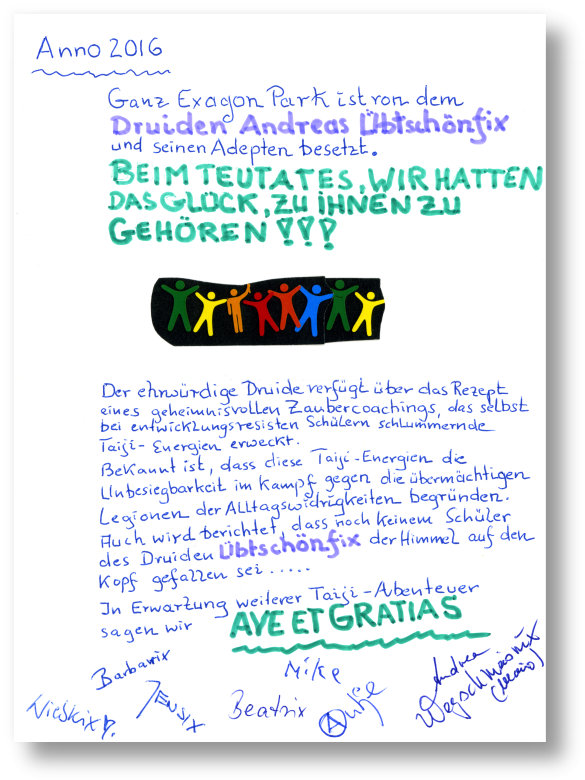 Anno 2016
Ganz Exagon Park ist von dem
Druiden Andreas Übtschönfix
und seinen Adepten besetzt.
BEIM TEUTATES, WIR HATTEN
DAS GLÜCK, ZU IHNEN ZU
GEHÖREN!!!
Der ehrwürdige Druide verfügt über das Rezept
eines geheimnisvollen Zaubercoachings, das selbst
bei entwicklungsresisten Schülern schlummernde
Taiji-Energien erweckt.
Bekannt ist, dass diese Taiji-Energien die
Unbesiegbarkeit im Kampf gegen die übermächtigen
Legionen der Alltagswidrigkeiten begründen.
Auch wird berichtet, dass noch keinem Schüler
des Druiden Übtschönfix der Himmel auf den
Kopf gefallen sei.....
In Erwartung weiterer Taiji-Abenteuer
sagen wir AVE ET GRATIAS
Barbarix
Mike
Andrea
JENSIX
Beatrix
Antje